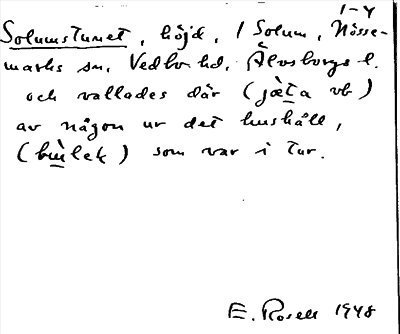 1-4
Solumstunet, höjd, i Solum, Nösse-
marks sn, Vedbo hd, Älvsborgs l.
och vallades där (jæta vb)
av någon ur det hushåll,
(bu̇lek) som var i tur.
E. Rosell 1948